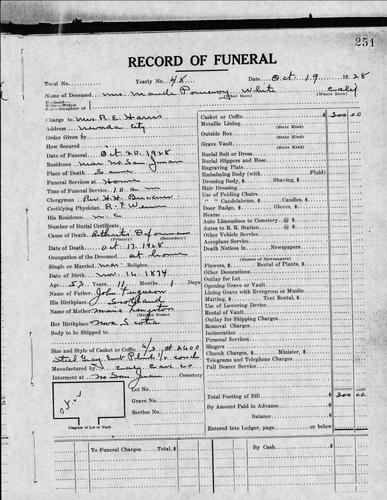 251
RECORD OF FUNERAL
Total No. Yearly No. 48 Date Oct. 19 1928
Name of Deceased Mrs. Maude Pomeroy White Calif
(What Race) (Where Born)
Charge to Mrs R. E. Harris
Address Nevada City
Order Given by
How Secured
Date of Funeral Oct. 20, 1928
Place of Death near No. San Juan
Funeral Services at Home
Time of Funeral Service 10 a m
Clergyman Rev. H. H.
Certifying Physician R. F.
His Residence N. C.
Number of Burial Certificate
Cause of Death Arthritis Deformans
(Primary) (Secondary)
Date of Death Oct. 17, 1928
Occupation of the Deceased at home
Single or Married Mar. Religion
Date of Birth Nov. 16, 1874
Age 53 Years 11 Months 1 Days
Name of Father John Ferguson
His Birthplace Scotland
Name of Mother
Her Birthplace Nova Scotia
Body to be Shipped to
Size and Style of Casket or Coffin
Manufactured by
Interment at No San Juan
Lot No.
Grave No.
Section No.
Diagram of Lot or Vault
Casket or Coffin 300 00
Metallic Lining
(State Kind)
Outside Box
(State Kind)
Grave Vault
(State Kind)
Burial Suit or Dress
Burial Slippers and Hose
Engraving Plate
Embalming Body (with Fluid)
Dressing Body, $ Shaving, $
Hair Dressing
Use of Folding Chairs
" " Candelabrum, $ Candles, $
Door Badge, $ Gloves, $
Hearse
Auto Limousines to Cemetery @ $
Autos to R. R. Station @ $
Other Vehicle Service
Aeroplane Service
Death Notices in Newspapers
(Names of Newspapers)
Flowers, $ Rental of Plants, $
Other Decorations
Outlay for Lot
Opening Grave or Vault
Lining Grave with Evergreen or Muslin
Matting, $ Tent Rental, $
Use of Lowering Device
Rental of Vault
Outlay for Shipping Charges
Removal Charges
Incineration
Personal Services
Singers
Church Charges, $ Minister, $
Telegrams and Telephone Charges
Pall Bearer Service
Total Footing of Bill 300 00
By Amount Paid in Advance
Balance
Entered into Ledger, page or below
To Funeral Charges Total $ By Cash $